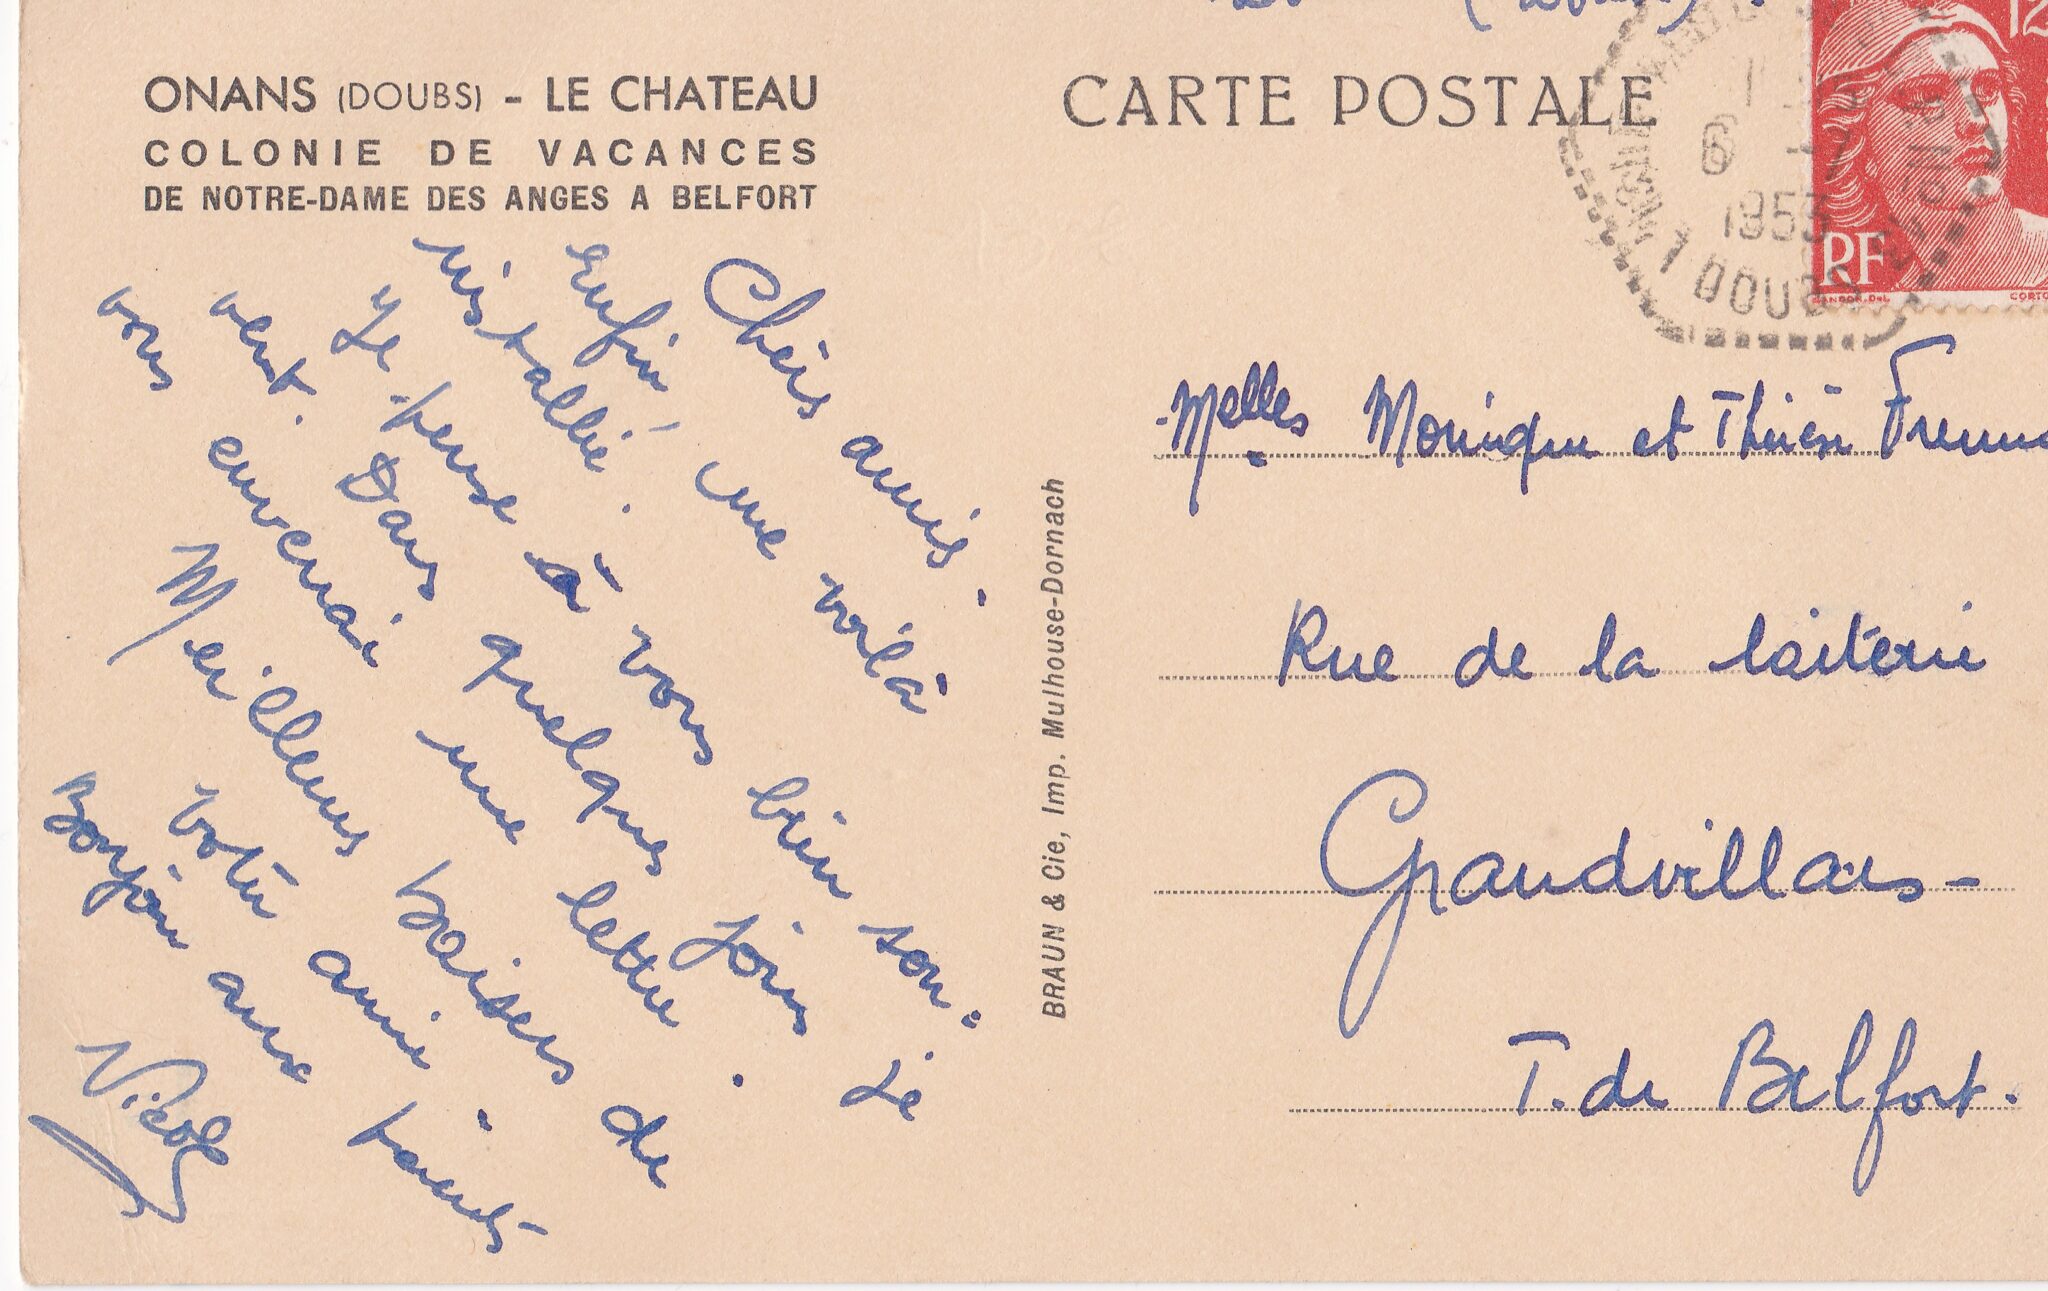 ONANS (DOUBS) - LE CHATEAU
COLONIE DE VACANCES
DE NOTRE-DAME DES ANGES A BELFORT
Chers amis.
Enfin, me voilà
installée.
Je pense à vous bien sou-
vent. Dans quelques jours je
vous enverrai une lettre.
Meilleurs baisers de
votre amie.
Bonjour aux parents
Nicole
BRAUN & Cie, Imp. Mulhouse-Dornach
CARTE POSTALE
6 -7
1953
DOUBS
12
RF
GANDON.DEL
Melles Monique et Thérèse
Rue de la laiterie
Grandvillars-
T. de Belfort.